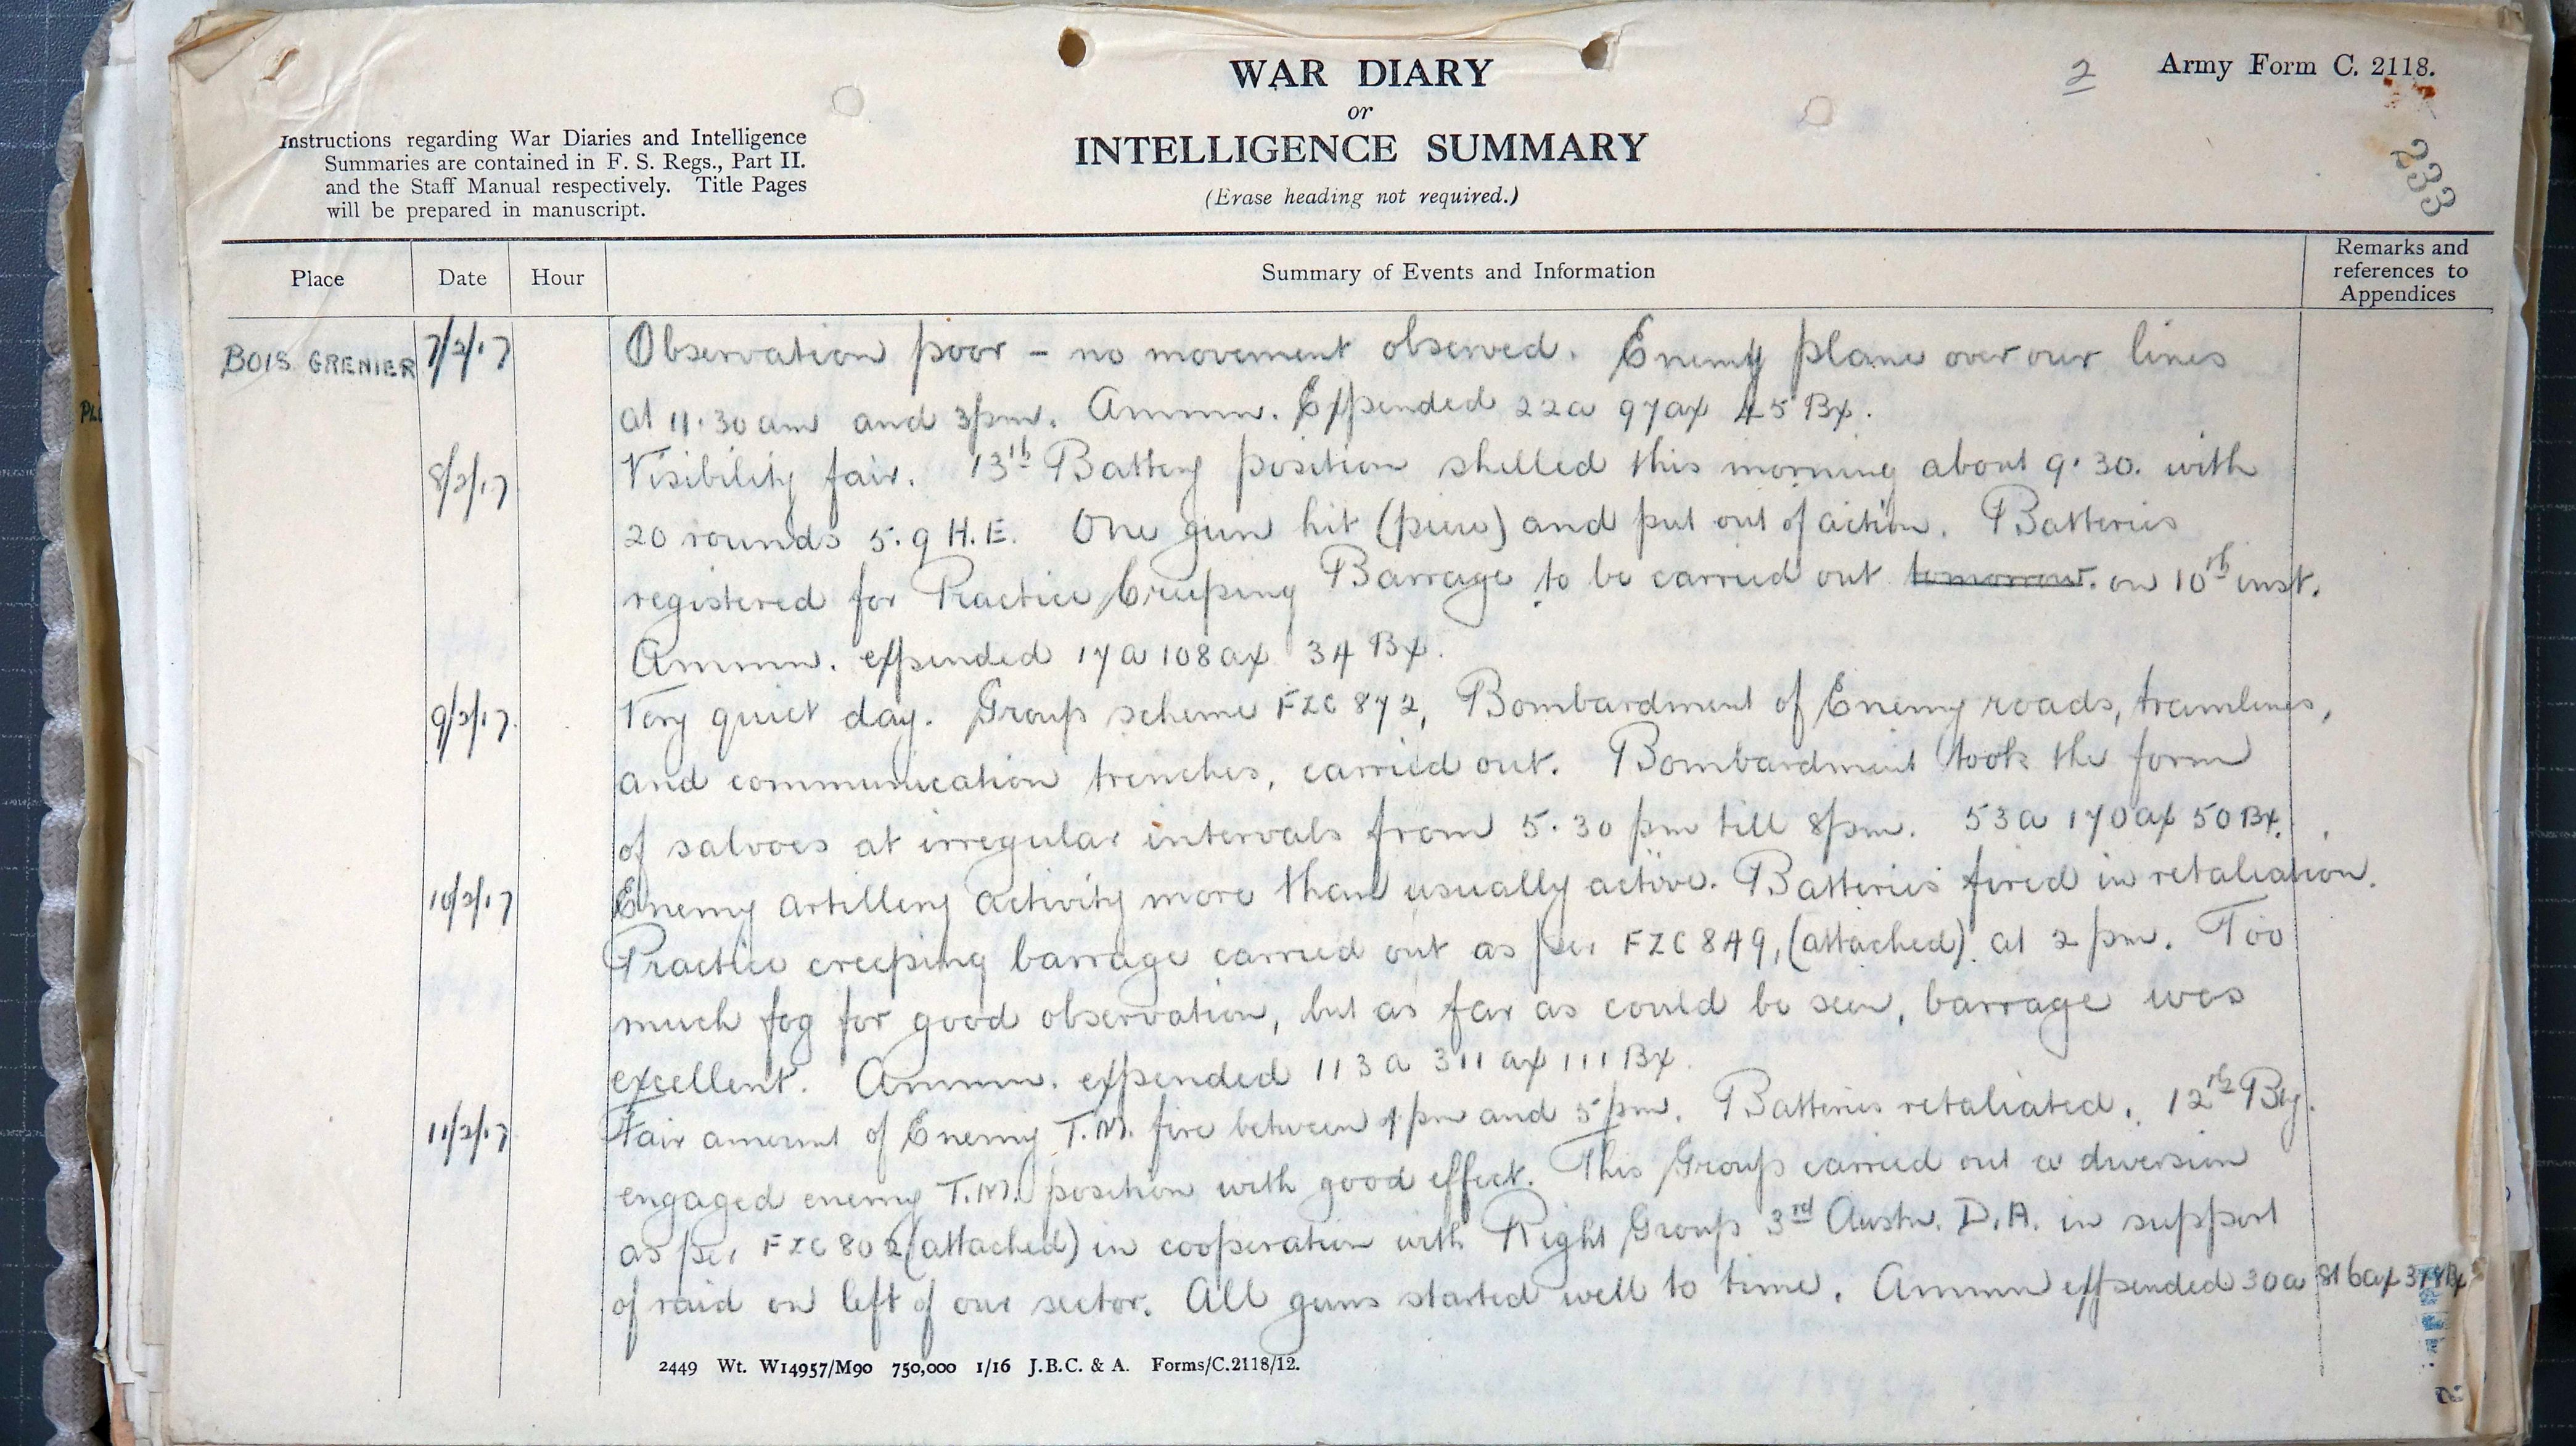 WAR DIARY
or
INTELLIGENCE SUMMARY
(Erase heading not required.)
2
Army Form C. 2118.
233
Instructions regarding War Diaries and Intelligence
Summaries are contained in F. S. Regs., Part II.
and the Staff Manual respectively. Title Pages
will be prepared in manuscript.
Place Date Hour Summary of Events and Information Remarks and references to Appendices
BOIS GRENIER 7/2/17 Observation poor - no movement observed. Enemy plane over our lines
at 11.30 am and 3pm. Ammn. Expended 22a 97ax 45 Bx.
8/2/17 Visibility fair. 13th Battery position shelled this morning about 9.30. with
20 rounds 5.9 H.E. One gun hit (piece) and put out of action. Batteries
registered for Practice Creeping Barrage to be carried out tomorrow. on 10th inst.
Ammn. expended 17a 108ax 34 Bx.
9/2/17. Very quiet day. Group scheme FZC 872, Bombardment of Enemy roads, tramlines,
and communication trenches, carried out. Bombardment took the form
of salvoes at irregular intervals from 5.30 pm till 8pm. 53a 170ax 50 Bx.
10/2/17 Enemy artillery activity more than usually active. Batteries fired in retaliation.
Practice creeping barrage carried out as per FZC 849, (attached) at 2 pm. Too
much fog for good observation, but as far as could be seen, barrage was
excellent. Ammn. expended 113a 311ax 111 Bx.
11/2/17 Fair amount of Enemy T.M. fire between 4pm and 5pm. Batteries retaliated. 12th Bty.
engaged enemy T.M. position with good effect. This Group carried out a diversion
as per FZC 802 (attached) in cooperation with Right Group 3rd Austn. D.A. in support
of raid on left of our sector. All guns started well to time. Ammn expended 30a 816ax
2449 Wt. W14957/M90 750,000 1/16 J.B.C. & A. Forms/C.2118/12.